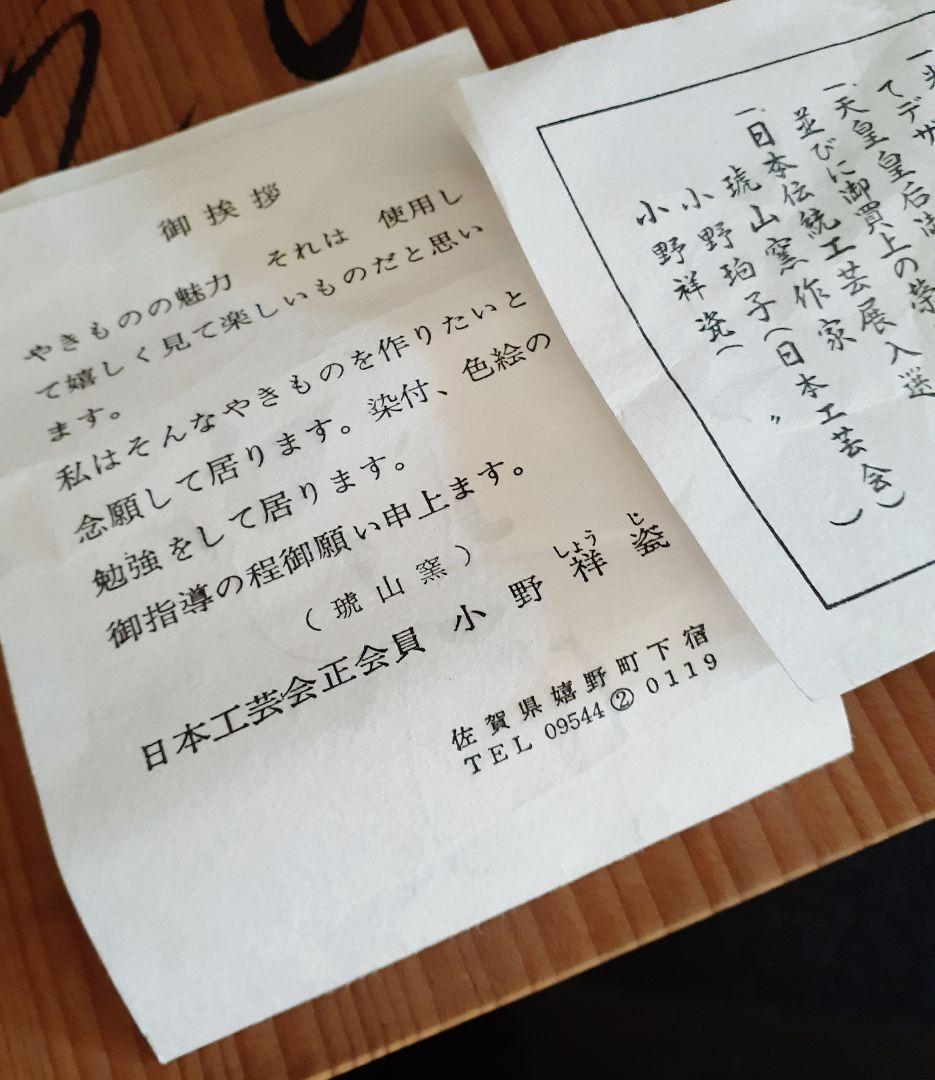 御挨拶
やきものの魅力 それは 使用し
て嬉しく見て楽しいものだと思い
ます。
私はそんなやきものを作りたいと
念願して居ります。染付、色絵の
勉強をして居ります。
御指導の程御願い申上ます。
(琥山窯)
日本工芸会正会員 小野祥瓷
しょう じ
佐賀県嬉野町下宿
TEL 09544②0119
てデザ
一、天皇皇后
並びに御買上の栄
一、日本伝統工芸展入選
琥山窯作家
小野珀子(日本工芸会)
小野祥瓷( 〃 )